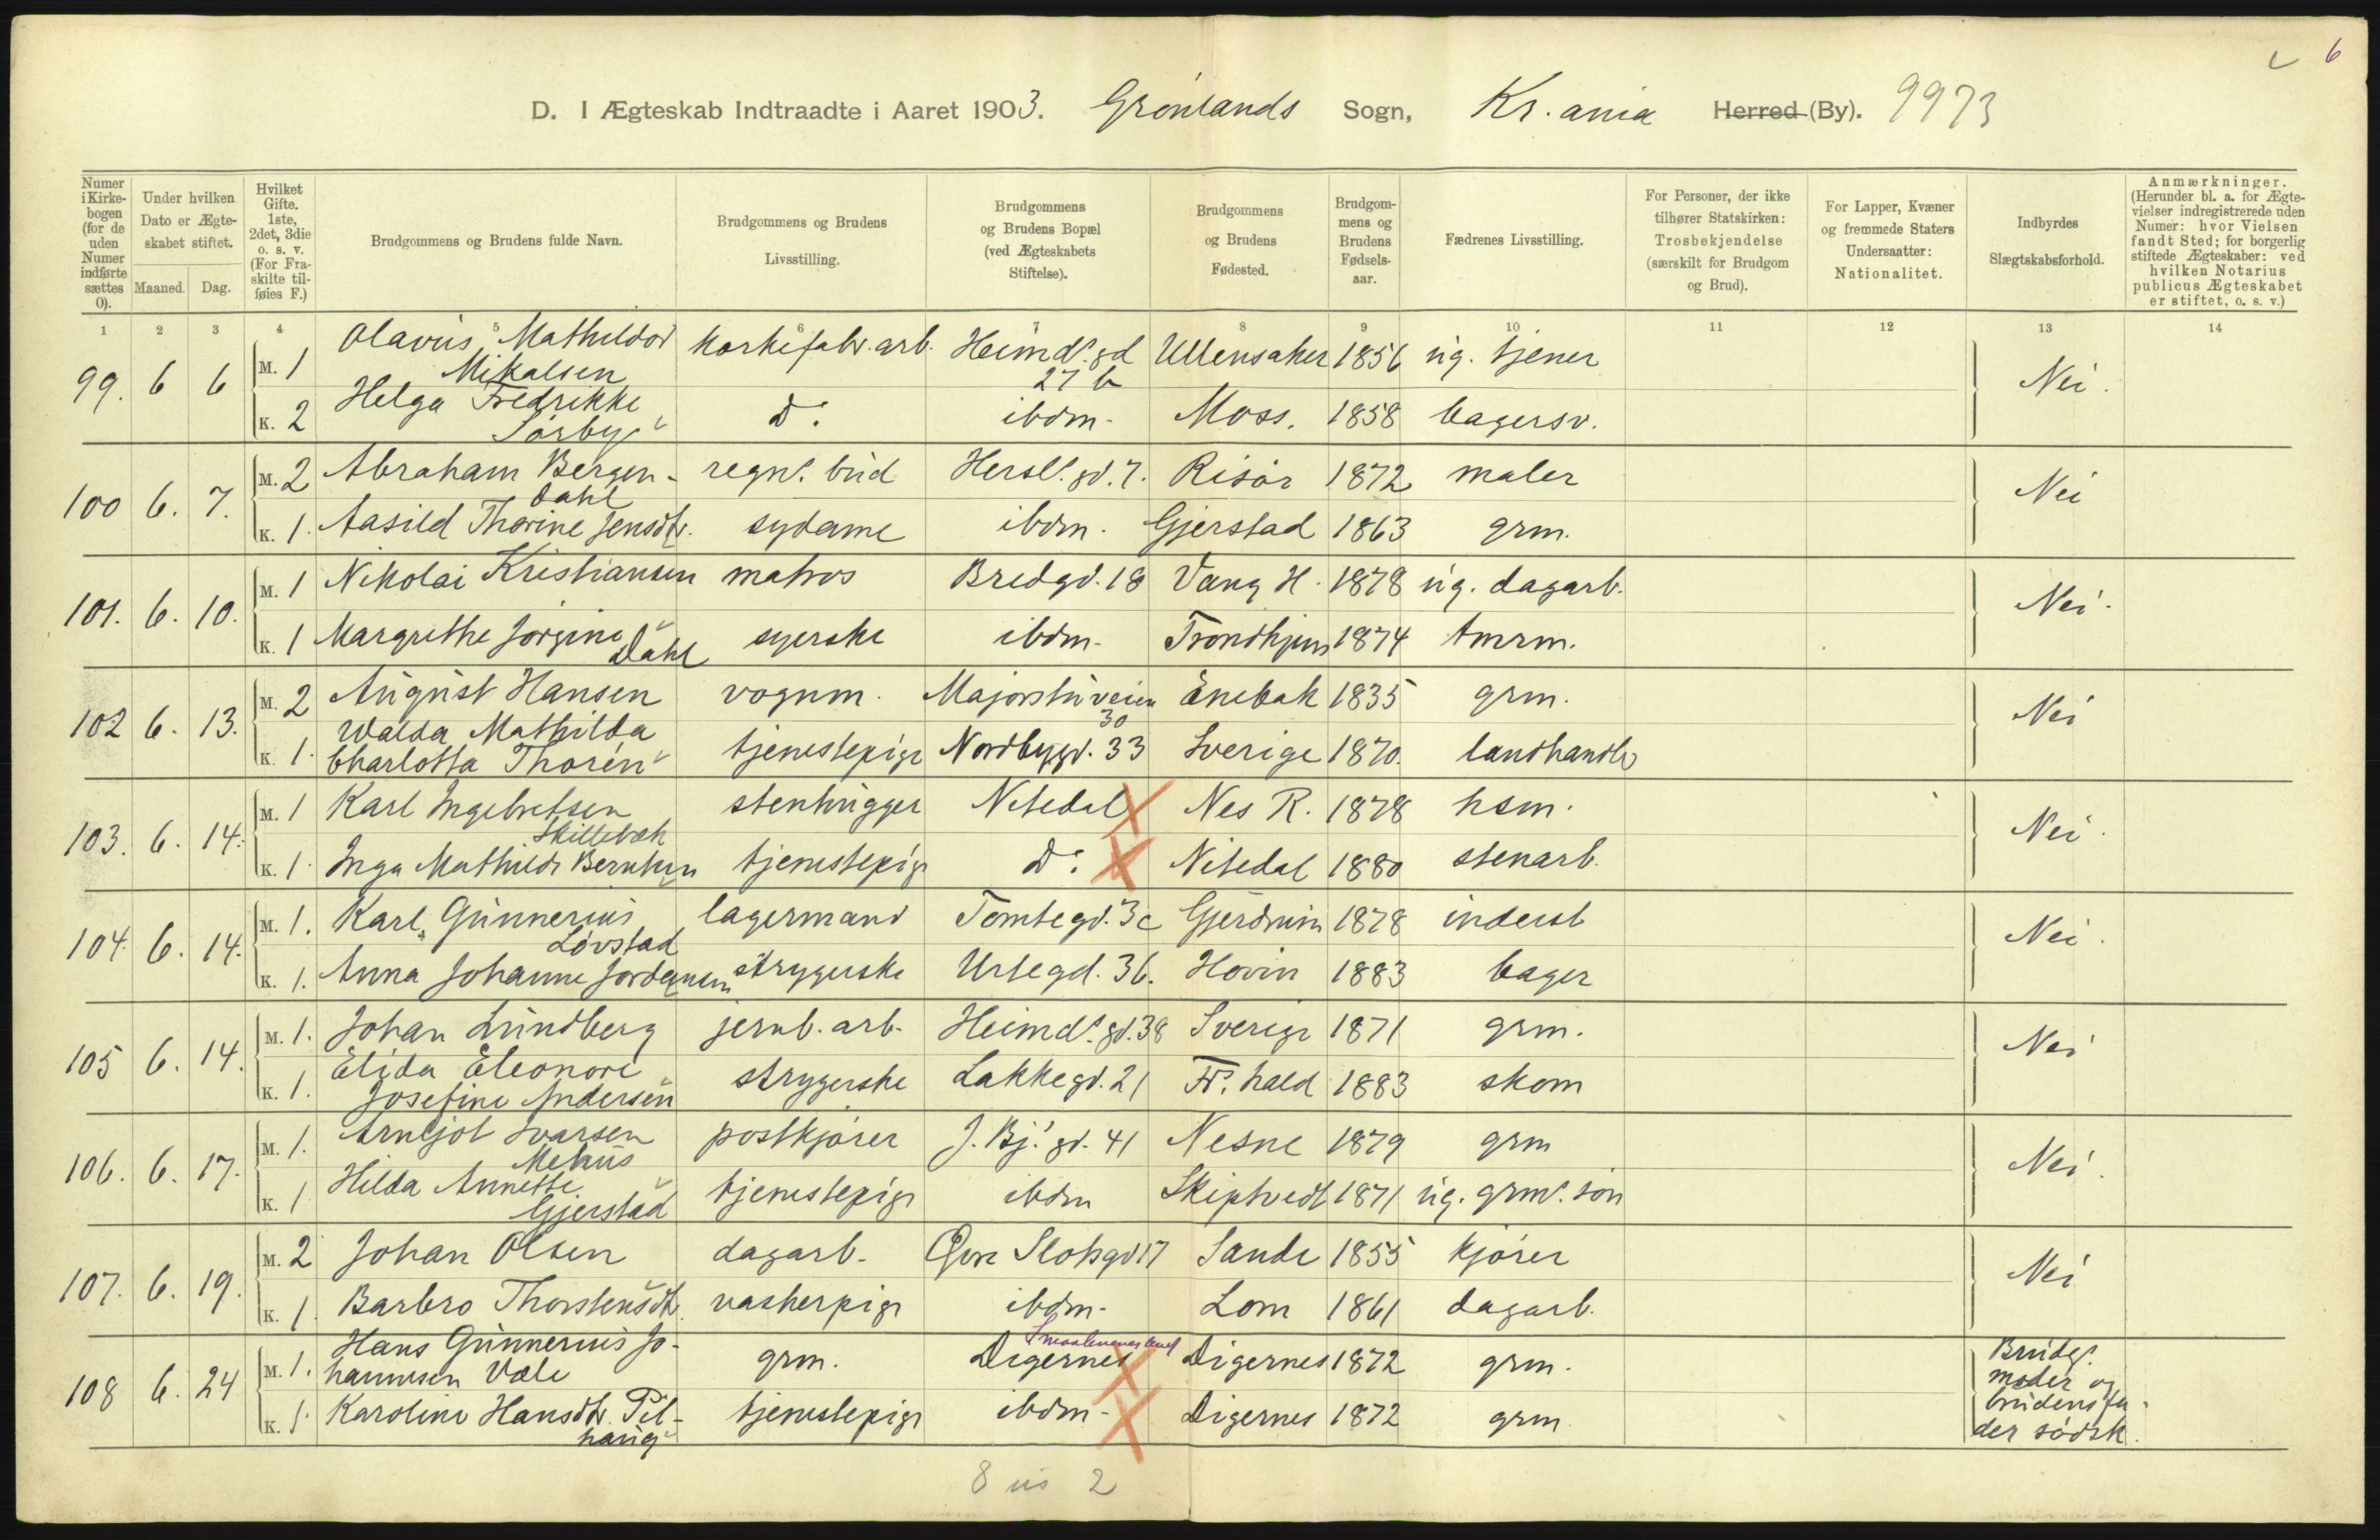 6
D. I Ægteskab Indtraadte i Aaret 1903. Grønlands Sogn, Kr.ania Herred (By). 9973
Numer i Kirkebogen (for de uden Numer indførte sættes 0).
Under hvilken Dato er Ægteskabet stiftet.
Maaned. Dag.
Hvilket Gifte. 1ste, 2det, 3die o. s. v. (For Fraskilte tilføies F.)
Brudgommens og Brudens fulde Navn.
Brudgommens og Brudens Livsstilling.
Brudgommens og Brudens Bopæl (ved Ægteskabets Stiftelse).
Brudgommens og Brudens Fødested.
Brudgommens og Brudens Fødselsaar.
Fædrenes Livsstilling.
For Personer, der ikke tilhører Statskirken: Trosbekjendelse (særskilt for Brudgom og Brud).
For Lapper, Kvæner og fremmede Staters Undersaatter: Nationalitet.
Indbyrdes Slægtskabsforhold.
Anmærkninger. (Herunder bl. a. for Ægtevielser indregistrerede uden Numer: hvor Vielsen fandt Sted; for borgerlig stiftede Ægteskaber: ved hvilken Notarius publicus Ægteskabet er stiftet, o. s. v.)
1 2 3 4 5 6 7 8 9 10 11 12 13 14
99. 6 6 M. 1 Olavus Mathildor Mikalsen korkefabr.arb. Heimd.s gd 27 b Ullensaker 1856 ug. tjener Nei.
K. 2 Helga Fredrikke Sørby D.o ibdm. Moss. 1858 bagersv.
100 6. 7. M. 2 Abraham Bergendahl regns. bud Hersl.s gd. 7. Risør 1872 maler Nei
K. 1. Aasild Thorine Jensdtr. sydame ibdm. Gjerstad 1863 grm.
101. 6. 10. M. 1 Nikolai Kristiansen matros Bredgd. 18 Vang H. 1878 ug. dagarb. Nei.
K. 1 Margrethe Jørgine Dahl syerske ibdm. Trondhjem 1874 tmrm.
102 6. 13. M. 2 August Hansen vognm. Majorstuveien 30 Enebak 1835 grm. Nei
K. 1. Walda Mathilda Charlotta Thorén tjenestepige Nordbygd. 33 Sverige 1870. landhandler
103. 6. 14. M. 1 Karl Ingebretsen Skillebæk stenhugger Nitedal Nes R. 1878 hsm. Nei.
K. 1. Inga Mathilde Berntsen tjenestepige D.o Nitedal 1880 stenarb.
104. 6. 14. M. 1. Karl Gunnerius Løvstad lagermand Tomtegd. 3c Gjerdrum 1878 inderst Nei.
K. 1. Anna Johanne Jordansen strygerske Urtegd. 36. Hovin 1883 bager
105 6. 14. M. 1. Johan Lundberg jernb. arb. Heimd.s gd. 38 Sverige 1871 grm. Nei
K. 1. Elida Eleonore Josefine Andersen strygerske Lakkegd. 21 Fr. hald 1883 skom
106. 6. 17. M. 1. Arnljot Ivarsen Mehus postkjører J. Bj.s gd. 41 Nesne 1879 grm Nei.
K. 1 Hilda Annette Gjerstad tjenestepige ibdm Skiptvedt 1871 ug. grm.s søn
107. 6. 19. M. 2 Johan Olsen dagarb. Øvre Slotsgd 17 Sande 1855 kjører Nei
K. 1 Barbro Thorstensdtr. vaskerpige ibdm. Lom 1861 dagarb.
108 6. 24 M. 1. Hans Gunnerius Johannesen Væle grm. Digernes Smaalenenes Digernes 1872 grm. Brudg.s moder og brudens fader sødsk.
K. 1. Karoline Hansdtr. Pilhaug tjenestepige ibdm. Digernes 1872 grm
8 us 2